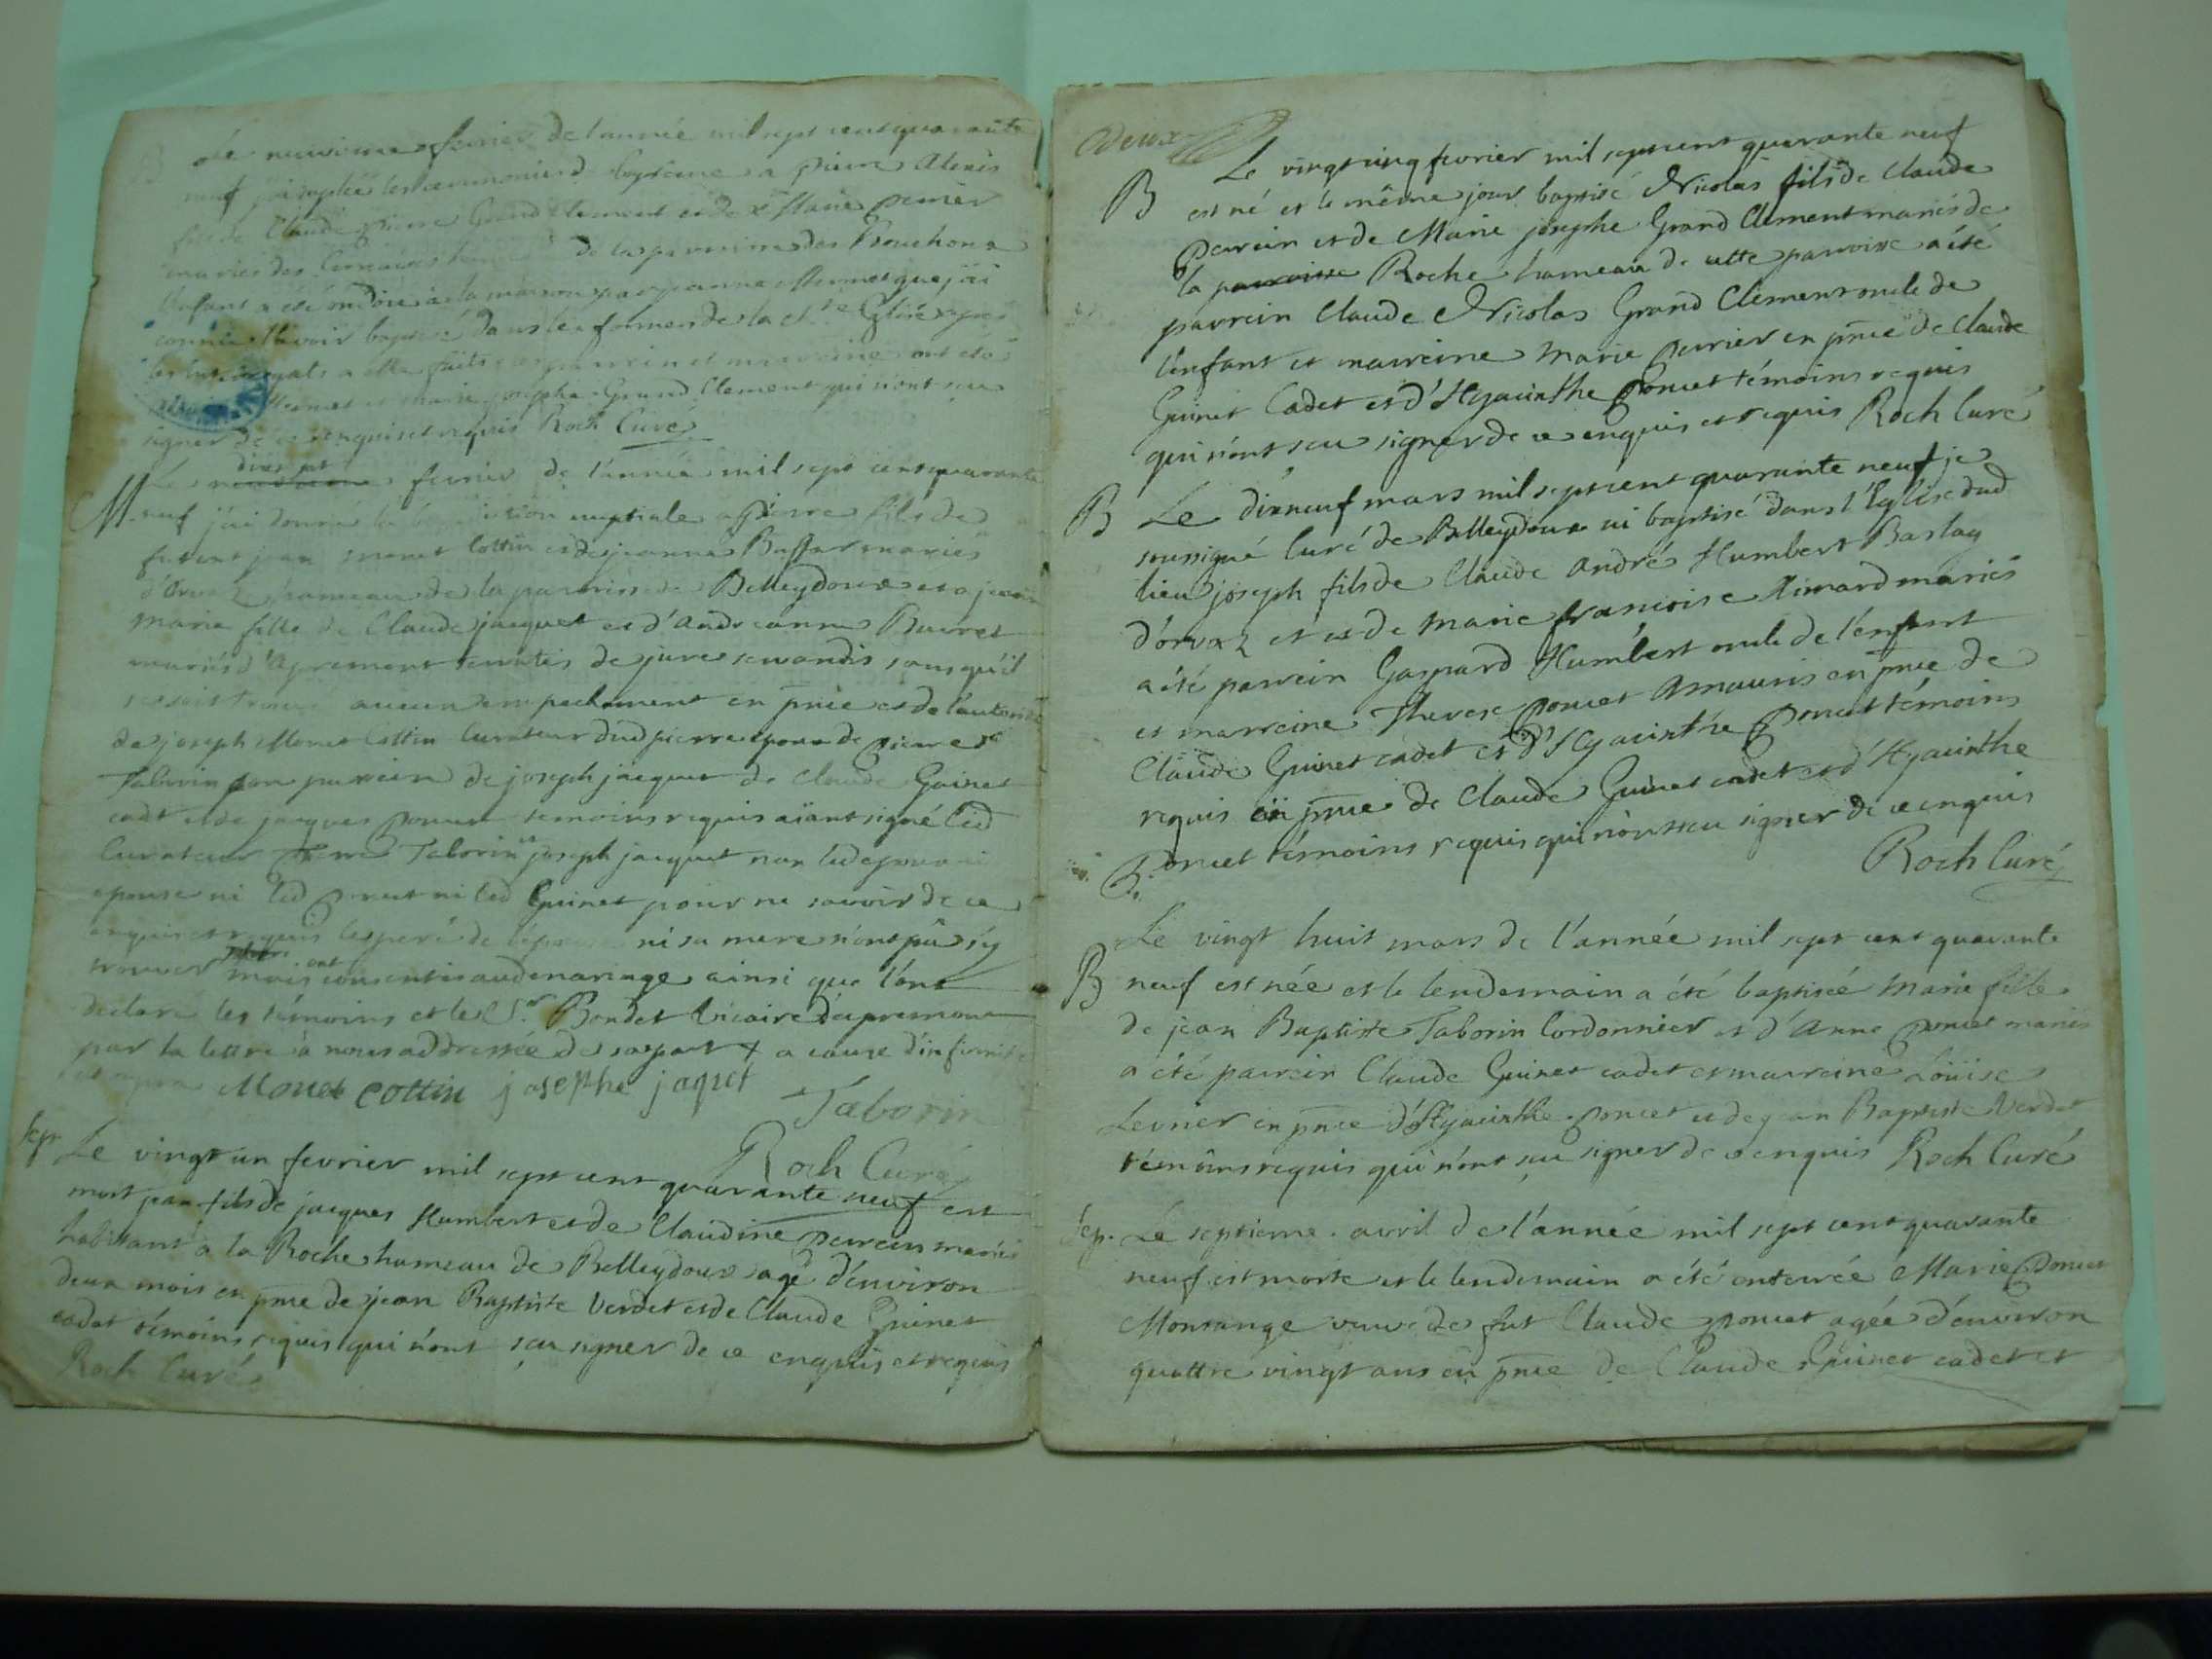 B Le neuvieme fevrier de l'année mil sept cent quarante
neuf j'ai supléé les ceremonies du baptême a pierre Alexis
fils de Claude pierre Grand Clement et de Marie perrier
mariés des de la paroisse des Bouchoux
l'enfant a été ondoié a la maison par jeanne Monet que j'ai
l'avoir baptisé dans les formes de la Ste Eglise après
les interrogats a elle faits parrein et marreine ont été
Monet et marie josephe Grand Clement qui n'ont sceu
signer de ce enquis et requis Roch Curé
dix sept
M. Le fevrier de l'année mil sept cent quarante
neuf j'ai donné la benediction nuptiale a pierre fils de
feu jean monet Cottin et de jeanne Buffar mariés
d'orvaz hameau de la paroisse de Belleydoux et a jeanne
marie fille de Claude jacquet et d'Andreanne Burret
mariés d'Apremont servatis de jure servandis sans qu'il
se soit trouvé aucun empechement en pnce et de l'autorité
de joseph Monet Cottin Curateur dud pierre epoux de pierre
Taborin son parrein de joseph jacquet de Claude Guinet
cadt et de jacques poncet temoins requis aïant signé led
Curateur pierre Taborin joseph jacquet non led epoux ni
epouse ni led poncet ni led Guinet pour ne savoir de ce
enquis et requis les peré de l'epouse ni sa mere n'ont pû s'y
trouver mais ont consentis aud mariage ainsi que l'ont
declaré les témoins et le Sr. Bondet Vicaire d'apremont
par la lettre a nous addressée de sa part + a cause d'infirmité
Monet cottin josephe jaqet
Taborin
Roch Curé
Sep. Le vingt un fevrier mil sept cent quarante neuf est
mort jean fils de jacques Humbert et de Claudine perrein mariés
habitant a la Roche hameau de Belleydoux agé d'environ
deux mois en pnce de jean Baptiste Verdet et de Claude Guinet
cadet témoins requis qui n'ont sçu signer de ce enquis et requis
Roch Curé
Deux
B Le vingt cinq fevrier mil sept cent quarante neuf
est né et le même jour baptisé Nicolas fils de Claude
perrein et de Marie josephe Grand Clement mariés de
la paroisse Roche hameau de cette paroisse a été
parrein Claude Nicolas Grand Clement oncle de
l'enfant et marreine Marie perrier en pnce de Claude
Guinet Cadet et d'Hyacinthe poncet témoins requis
qui n'ont sceu signer de ce enquis et requis Roch Curé
B Le dixneuf mars mil sept cent quarante neuf je
soussigné Curé de Belleydoux ai baptisé dans l'Eglise dud
lieu joseph fils de Claude André Humbert Barlay
d'orvaz et et de Marie francoise Rimard mariés
a été parrein Gaspard Humbert oncle de l'enfant
et marreine Therese poncet Amauris en pnce de
Claude Guinet cadet et d'Hyacinthe poncet témoins
requis en pnce de Claude Guinet cadet et d'Hyacinthe
Poncet témoins requis qui n'ont sceu signer de ce enquis
Roch Curé
Le vingt huit mars de l'année mil sept cent quarante
B neuf est née et le lendemain a été baptisée Marie fille
de jean Baptiste Taborin Cordonnier et d'Anne poncet mariés
a été parrein Claude Guinet cadet et marreine Loüise
Levrier en pnce d'Hyacinthe poncet et de jean Baptiste Verdet
témoins requis qui n'ont sçu signer de ce enquis Roch Curé
Sep. Le septieme avril de l'année mil sept cent quarante
neuf est morte et le lendemain a été enterrée Marie poncet
Monrange veuve de fut Claude poncet agée d'environ
quattre vingt ans en pnce de Claude Guinet cadet et